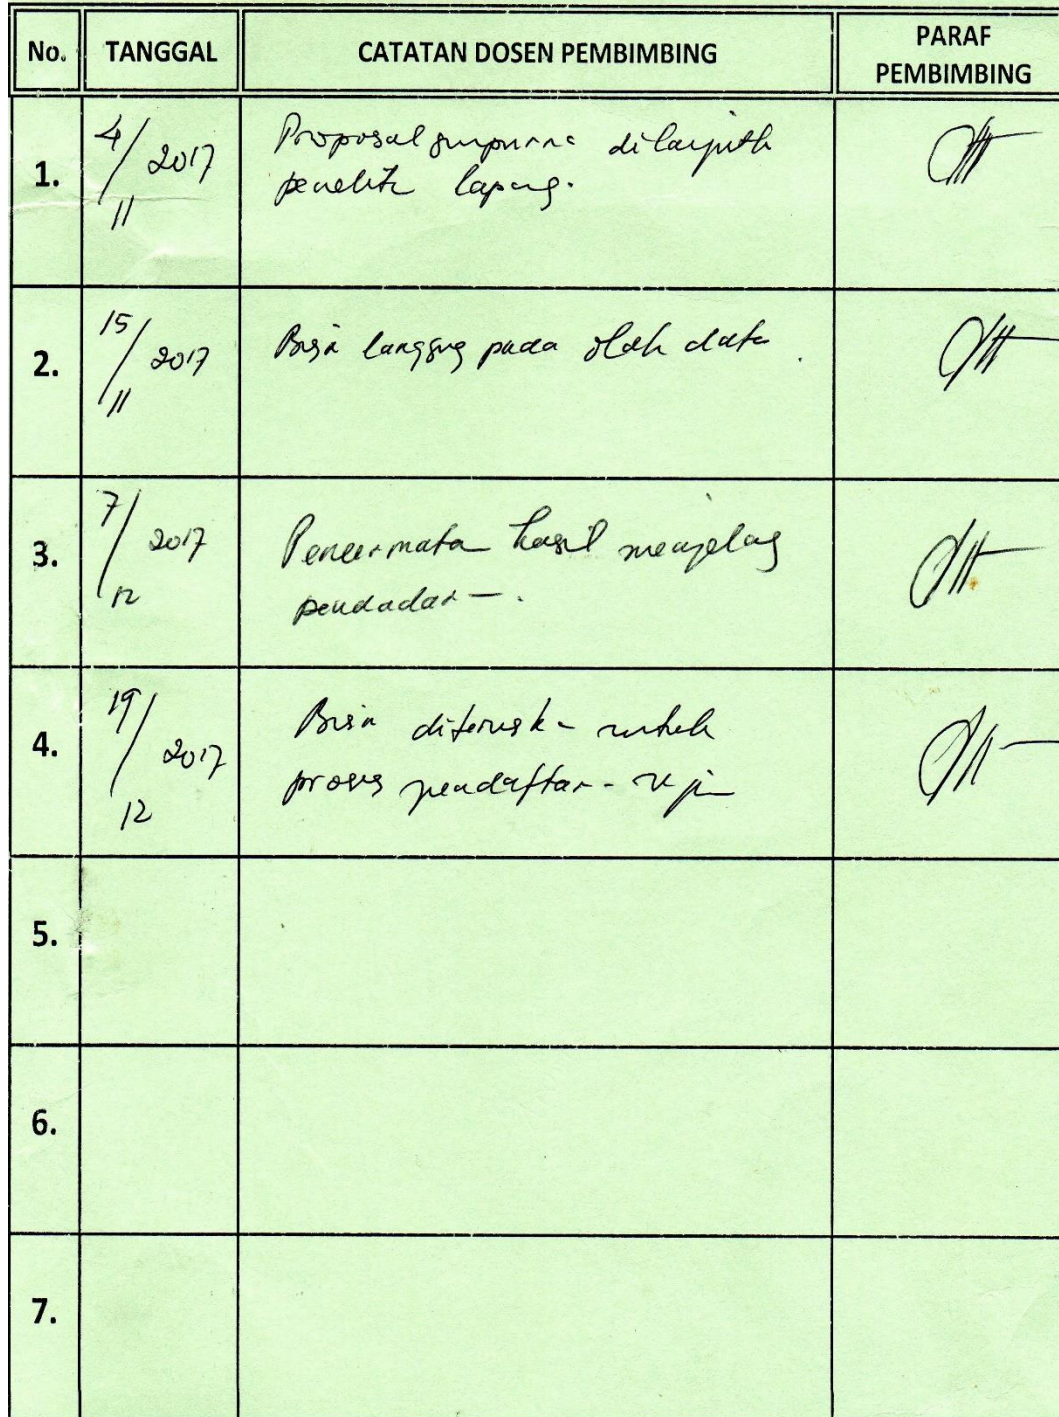 No. TANGGAL CATATAN DOSEN PEMBIMBING PARAF
PEMBIMBING
1. 4/11 2017 Proposal dilanjutk
penelit lapang.
2. 15/11 2017 Bisa langsung pada olah data.
3. 7/12 2017 Pencermata hasil menjelang
pendadar-.
4. 19/12 2017 Bisa diterusk- untuk
proses pendaftar- uji
5.
6.
7.